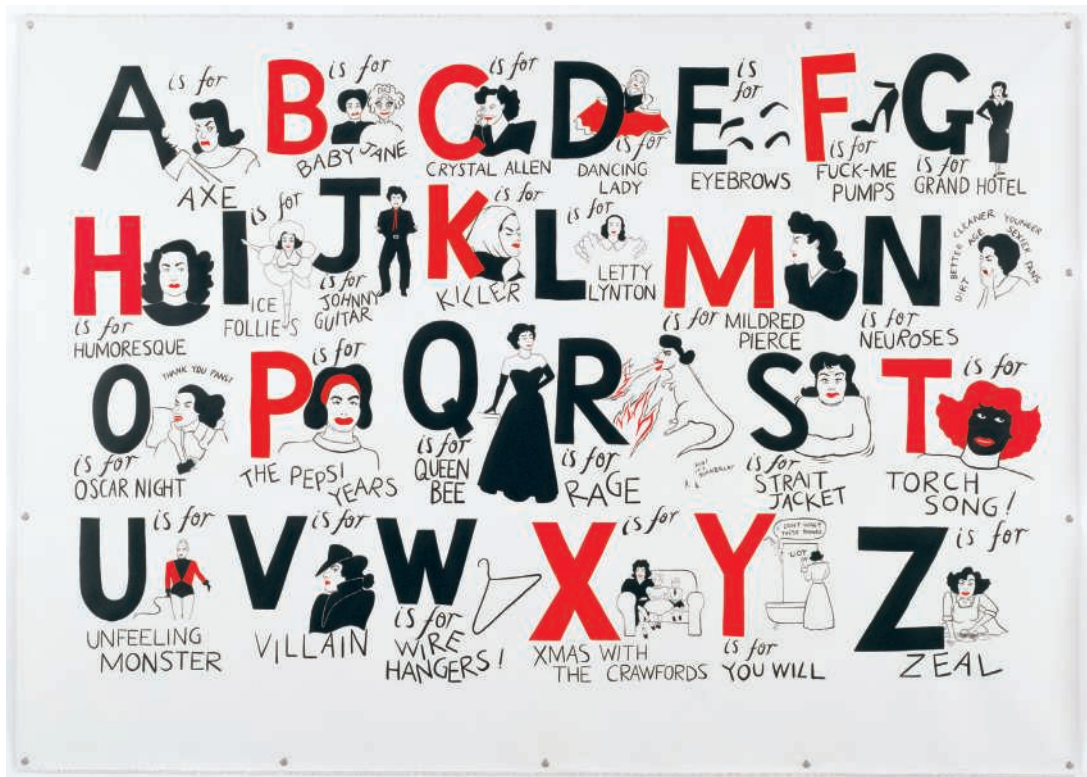 A is for
AXE
B is for
BABY JANE
C is for
CRYSTAL ALLEN
D
is for
DANCING
LADY
E is
for
EYEBROWS
F
is for
FUCK-ME
PUMPS
G
is for
GRAND HOTEL
H
is for
HUMORESQUE
I is for
ICE
FOLLIES
J
is for
JOHNNY
GUITAR
K is for
KILLER
L is for
LETTY
LYNTON
M
is for MILDRED
PIERCE
N
is for
NEUROSES
DIRT AGE
BETTER CLEANER YOUNGER
SEXIER FANS
O
THANK YOU FANS!
is for
OSCAR NIGHT
P is for
THE PEPSI
YEARS
Q
is for
QUEEN
BEE
R
is for
RAGE
S
is for
STRAIT
JACKET
T is for
TORCH
SONG!
U is for
UNFEELING
MONSTER
V is for
VILLAIN
W
is for
WIRE
HANGERS!
X is for
XMAS WITH
THE CRAWFORDS
Y
I DON'T WANT
is for
YOU WILL
Z is for
ZEAL